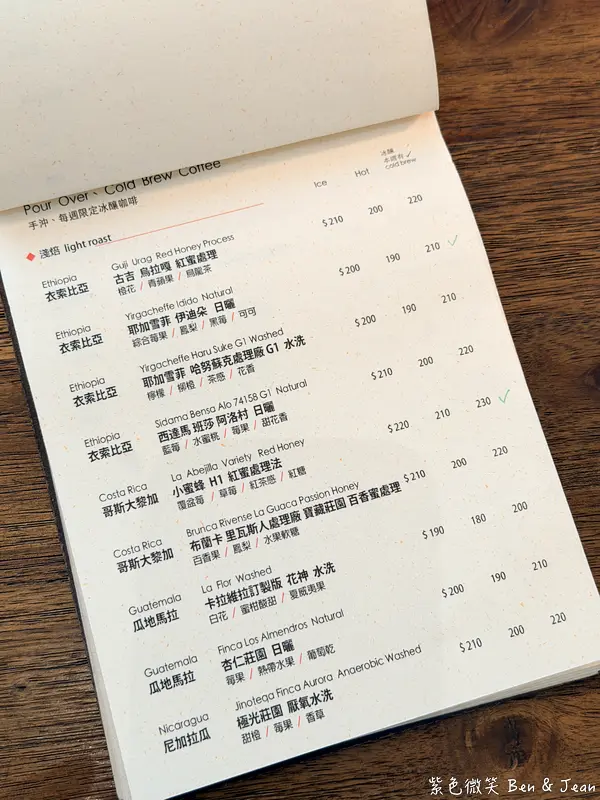 Pour Over、Cold Brew Coffee
手沖、每週限定冰釀咖啡
Ice Hot 冰釀
本週有✓
cold brew
◆ 淺焙 light roast
Ethiopia Guji Urag Red Honey Process $210 200 220
衣索比亞 古吉 烏拉嘎 紅蜜處理
橙花 / 青蘋果 / 烏龍茶
Ethiopia Yirgacheffe Idido Natural $200 190 210 ✓
衣索比亞 耶加雪菲 伊迪朵 日曬
綜合莓果 / 鳳梨 / 黑莓 / 可可
Ethiopia Yirgacheffe Haru Suke G1 Washed $200 190 210
衣索比亞 耶加雪菲 哈努蘇克處理廠 G1 水洗
檸檬 / 柳橙 / 茶感 / 花香
Ethiopia Sidama Bensa Alo 74158 G1 Natural $210 200 220
衣索比亞 西達馬 班莎 阿洛村 日曬
藍莓 / 水蜜桃 / 莓果 / 甜花香
Costa Rica La Abejilla Variety Red Honey $220 210 230 ✓
哥斯大黎加 小蜜蜂 H1 紅蜜處理法
覆盆莓 / 草莓 / 紅茶感 / 紅糖
Costa Rica Brunca Rivense La Guaca Passion Honey $210 200 220
哥斯大黎加 布蘭卡 里瓦斯人處理廠 寶藏莊園 百香蜜處理
百香果 / 鳳梨 / 水果軟糖
Guatemala La Flor Washed $190 180 200
瓜地馬拉 卡拉維拉訂製版 花神 水洗
白花 / 蜜柑酸甜 / 夏威夷果
Guatemala Finca Los Almendros Natural $200 190 210
瓜地馬拉 杏仁莊園 日曬
莓果 / 熱帶水果 / 葡萄乾
Nicaragua Jinoteqa Finca Aurora Anaerobic Washed $210 200 220
尼加拉瓜 極光莊園 厭氧水洗
甜橙 / 莓果 / 香草
紫色微笑 Ben & Jean